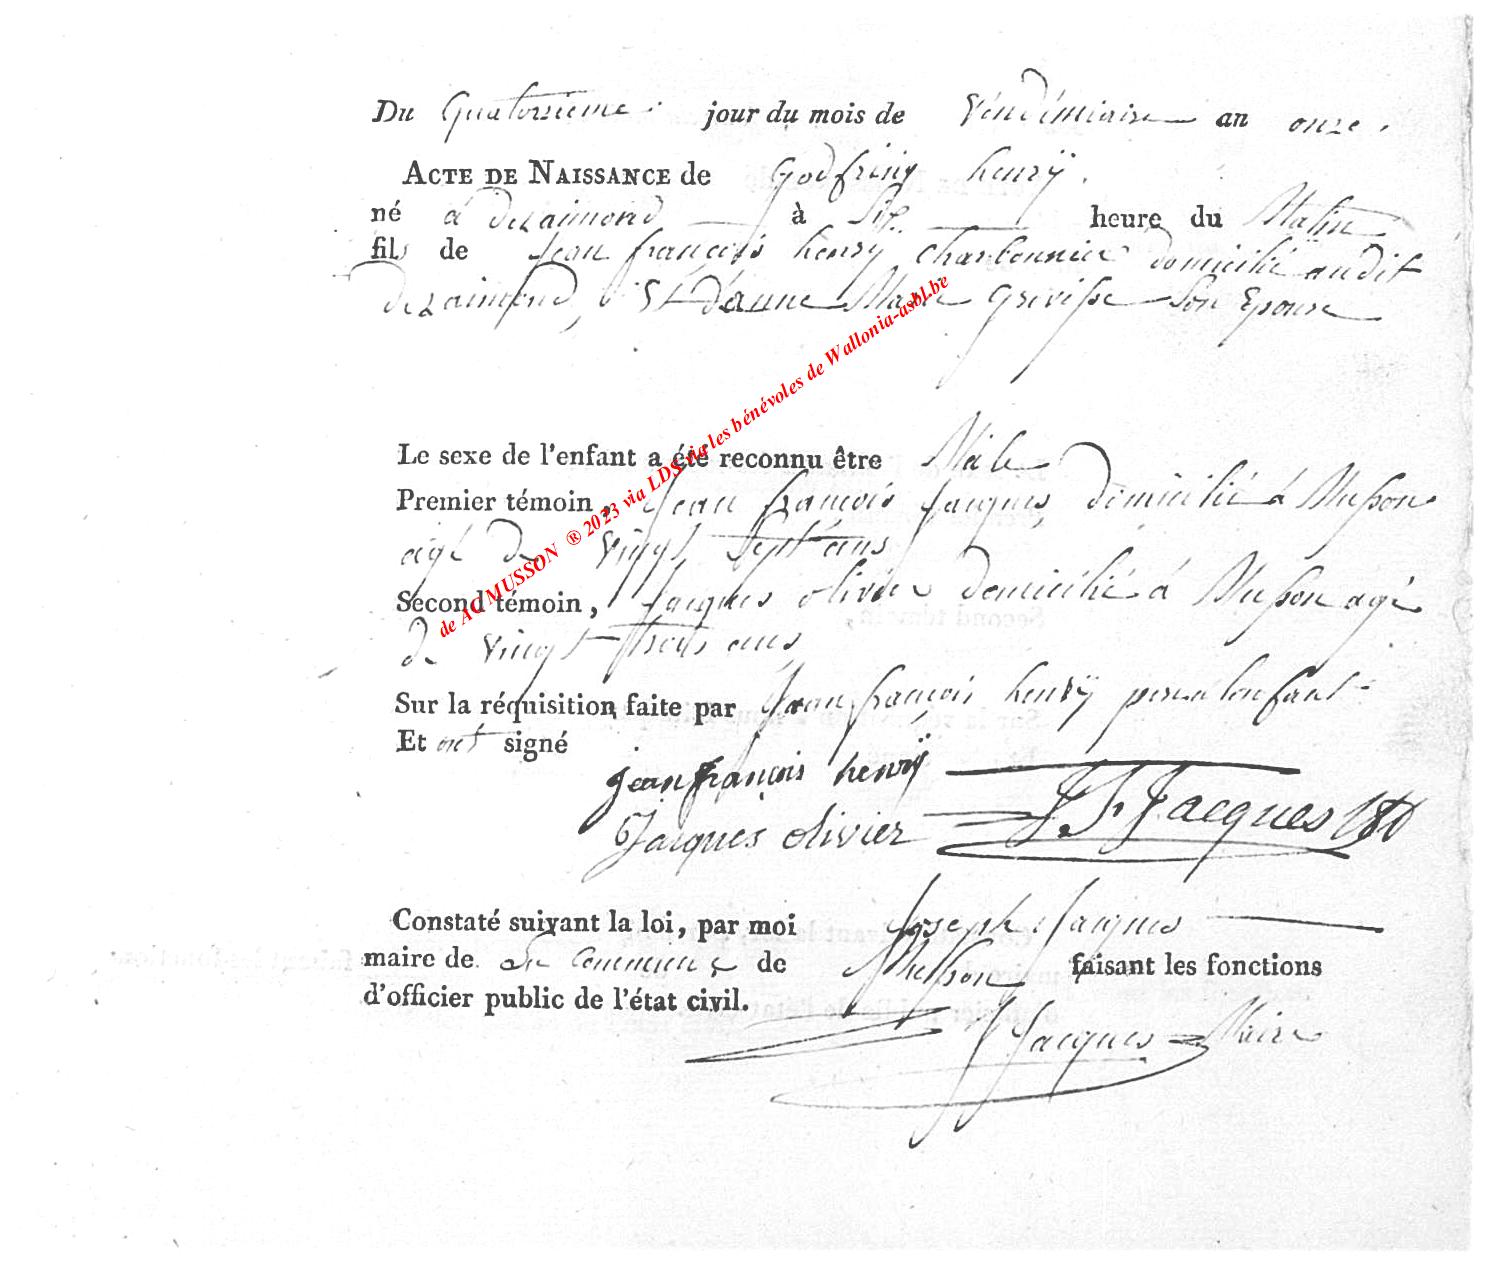 Du Quatorzieme jour du mois de Vendémiaire an onze.
ACTE DE NAISSANCE de Godfrinq henrÿ.
né à dezaimond à Six heure du Matin
fils de Jean françois henrÿ charbonnier domicilié audit
dezaimond, Et d'anne Marie Grevisse Son Epouse
Le sexe de l'enfant a été reconnu être Mâle
Premier témoin, Jean françois Jacques, domicilié à Musson
agé de vingt Sept ans
Second témoin, Jacques olivier domicilié à Musson agé
de vingt trois ans
Sur la réquisition faite par Jean françois henrÿ pere de lenfant
Et ont signé
jean françois henrÿ
Jacques olivier J. F. Jacques
Constaté suivant la loi, par moi Joseph Jacques
maire de La Commune de Musson faisant les fonctions
d'officier public de l'état civil.
J Jacques Maire
de AC MUSSON ® 2023 via LDS via les bénévoles de Wallonia-asbl.be